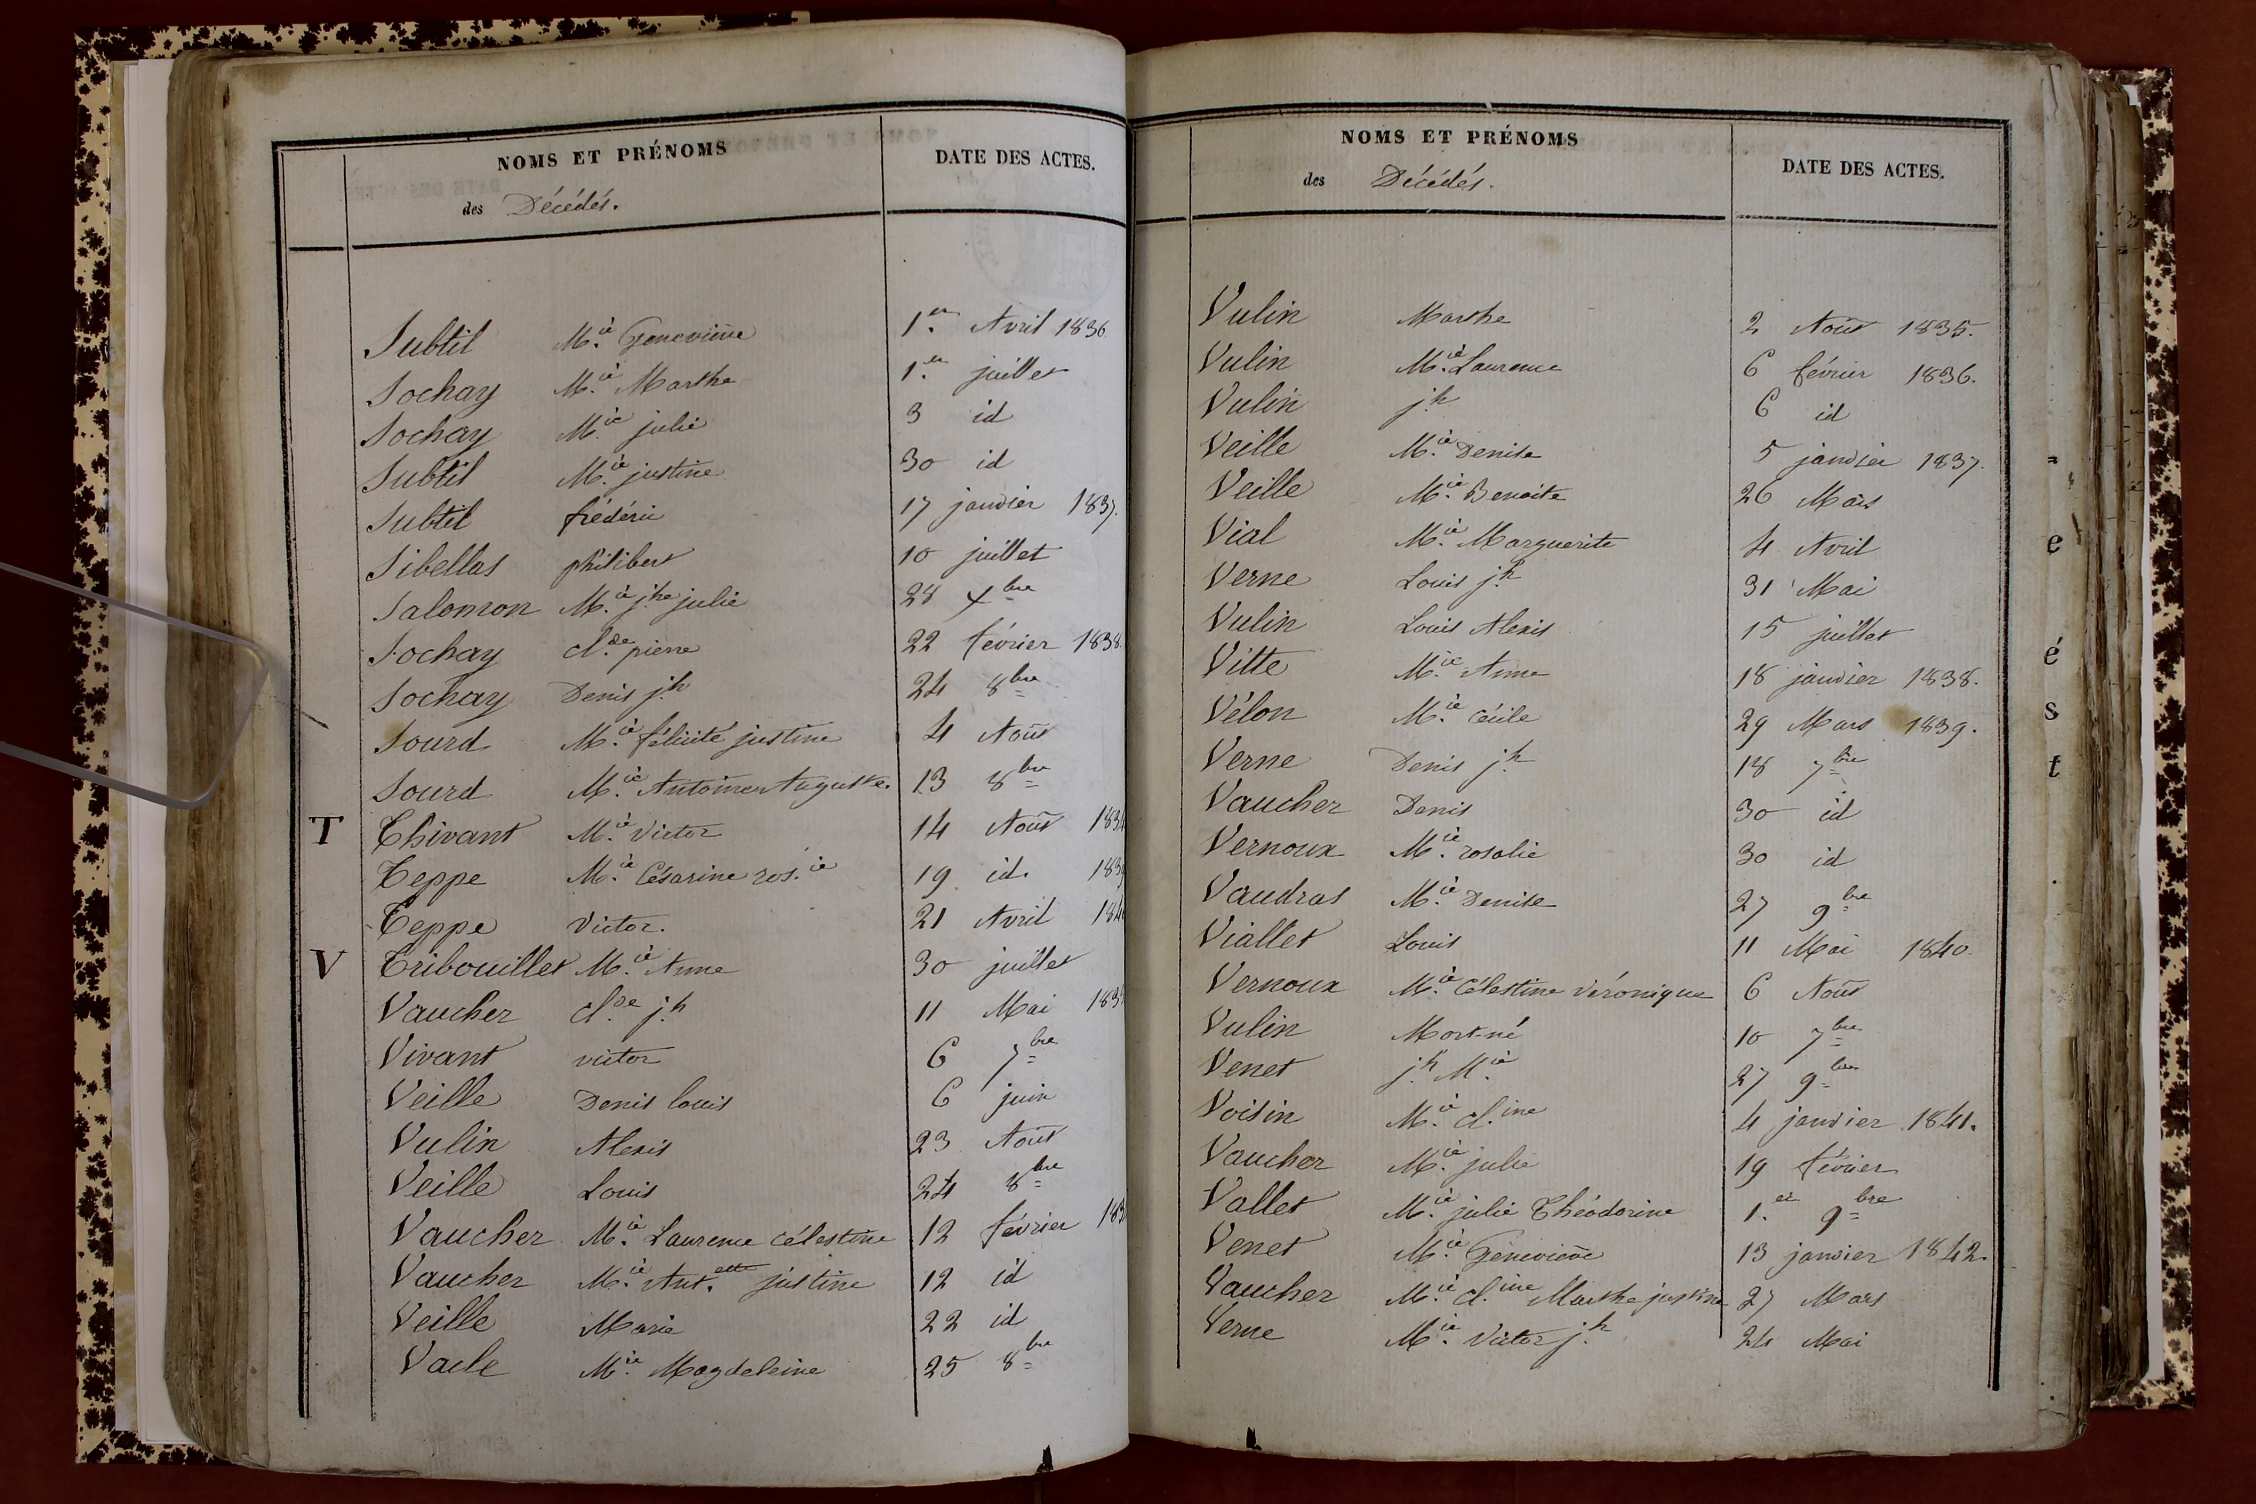 NOMS ET PRÉNOMS DATE DES ACTES.
des Décédés.
Subtil M.ie Geneviève 1.er Avril 1836
Sochay M.ie Marthe 1.er juillet
Sochay M.ie julie 3 id
Subtil M.ie justine 30 id
Subtil frédéric 17 janvier 1837.
Sibellas philibert 10 juillet
Salomon M.ie j.he julie 28 xbre
Sochay cl.de pierre 22 février 1838
Sochay Denis j.h 24 8bre
Sourd M.ie félicité justine 4 Août
Sourd M.ie Antoine Auguste. 13 8bre
T Thivant M.ie Victor 14 Août 183
Teppe M.ie Césarine ros.ie 19 id. 183
Teppe Victor. 21 Avril 184
V Tribouillet M.ie Anne 30 juillet
Vaucher cl.de j.h 11 Mai 183
Vivant victor 6 7bre
Veille Denis louis 6 juin
Vulin Alexis 23 Août
Veille Louis 24 8bre
Vaucher M.ie Laurence célestine 12 février 183
Vaucher M.ie Ant. justine 12 id
Veille Marie 22 id
Vacle M.ie Magdeleine 25 8bre
NOMS ET PRÉNOMS DATE DES ACTES.
des Décédés.
Vulin Marthe 2 Août 1835.
Vulin M.ie Laurence 6 février 1836.
Vulin j.h 6 id
Veille M.ie Denise 5 janvier 1837.
Veille M.ie Benoite 26 Mars
Vial M.ie Marguerite 4 Avril
Verne Louis j.h 31 Mai
Vulin Louis Alexis 15 juillet
Vitte M.ie Anne 18 janvier 1838.
Vélon M.ie Cécile 29 Mars 1839.
Verne Denis j.h 18 7bre
Vaucher Denis 30 id
Vernoux M.ie rosalie 30 id
Vaudras M.ie Denise 27 9bre
Viallet Louis 11 Mai 1840.
Vernoux M.ie Célestine Véronique 6 Août
Vulin Mort-né 10 7bre
Venet j.h M.ie 27 9bre
Voisin M.ie cl.ine 4 janvier 1841.
Vaucher M.ie julie 19 février
Vallet M.ie julie Théodorine 1.er 9bre
Venet M.ie Geneviève 13 janvier 1842.
Vaucher M.ie cl.ine Marthe justine 27 Mars
Verne M.ie Victor j.h 24 Mai
e
é
s
t